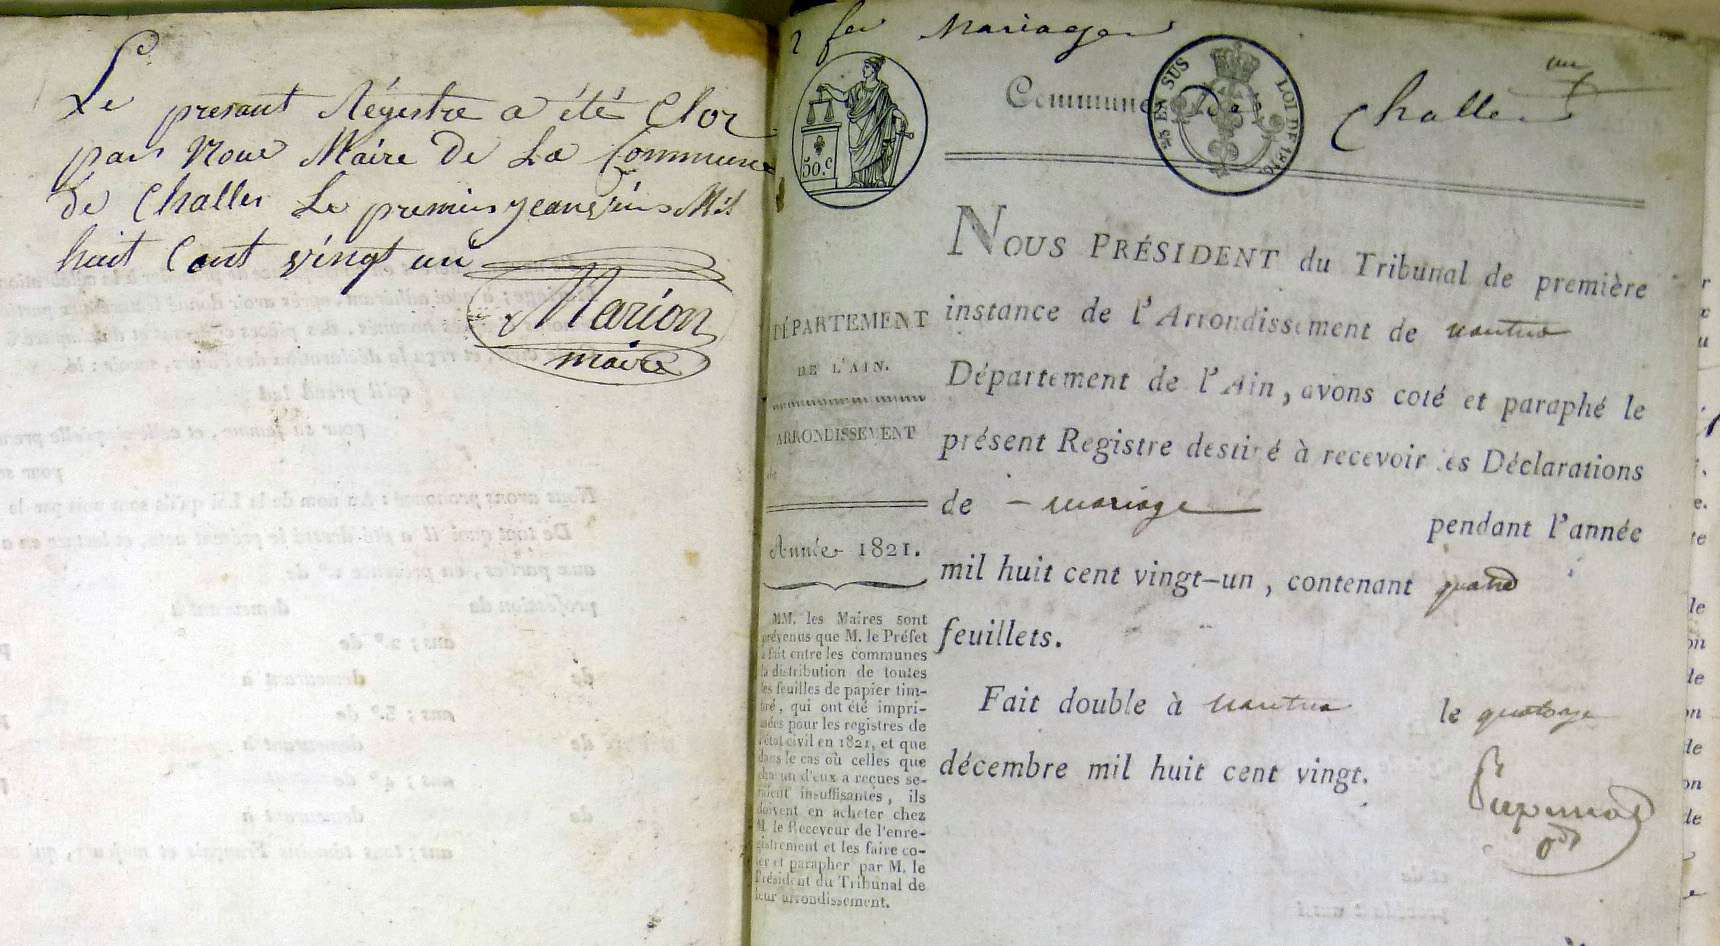 Le
presant Régistre a été Clos
par Nous Maire De La Commune
de Challes Le premier jeanvier Mil
huit Cent vingt un
Marion
maire
2 fer Mariages
50.c
Commune De Challes
un
EN SUS
LOI DE 1816
NOUS PRÉSIDENT du Tribunal de première
instance de l'Arrondissement de nantua
Département de l'Ain, avons coté et paraphé le
présent Registre destiné à recevoir les Déclarations
de - mariage
pendant l'année
mil huit cent vingt-un, contenant quatre
feuillets.
Fait double à nantua le quatorze
décembre mil huit cent vingt.
DÉPARTEMENT
DE L'AIN.
ARRONDISSEMENT
de
Année 1821.
MM. les Maires sont
prévenus que M. le Préfet
a fait entre les communes
la distribution de toutes
les feuilles de papier tim-
bré, qui ont été impri-
mées pour les registres de
l'état civil en 1821, et que
dans le cas où celles que
chacun d'eux a reçues se-
roient insuffisantes, ils
doivent en acheter chez
M. le Receveur de l'enre-
gistrement et les faire co-
ter et parapher par M. le
Président du Tribunal de
leur arrondissement.